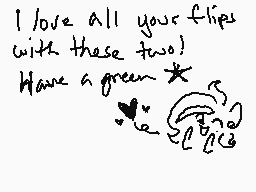 I love all your flips
with these two!
Have a green ★